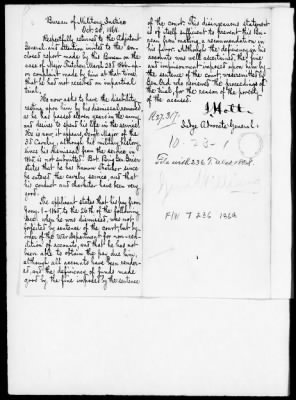 Bureau of Military Justice
Oct. 20, 1868.
Respectfully returned to the Adjutant
General, and attention invited to the
report made by this Bureau in the
case of Major Thatcher March 28th 1866, up-
on complaint made by him at that time
that he has not received an impartial
trial.
He now asks to have the disability
resting upon him by his dismissal removed
as he has passed eleven years in the army
and desires to spend his life in the service.
He is now, it appears, Sergt. Major of the
38 Cavalry, although his military history
since his dismissal from the service in
1865 is not submitted. But
states that he has known Thatcher since
he entered the cavalry service, and that
his conduct and character have been very
good.
The applicant states that his pay from
Jany. 1-1865 to the 26th of the following
when he was dismissed, was not
forfeited by sentence of the court, but by
order of the War Department for non-ren-
dition of accounts, and that he has not
been able to obtain the pay due him,
although all accounts have been render-
ed, and the deficiency of funds made
good by the fine imposed by the sentence
of the court. This disingenuous statement
is of itself sufficient to prevent this Bu-
reau from making a recommendation in
his favor. Although the deficiency in his
accounts was well ascertained, the fine
and imprisonment imposed upon him by
the sentence of the court, were remitted by
who reviewed the proceedings of
the trial, for the reason of the poverty
of the accused.
J Holt
Judge Advocate General.
10-23-1
File with 236 T. 1868.
F/W T 236 1868